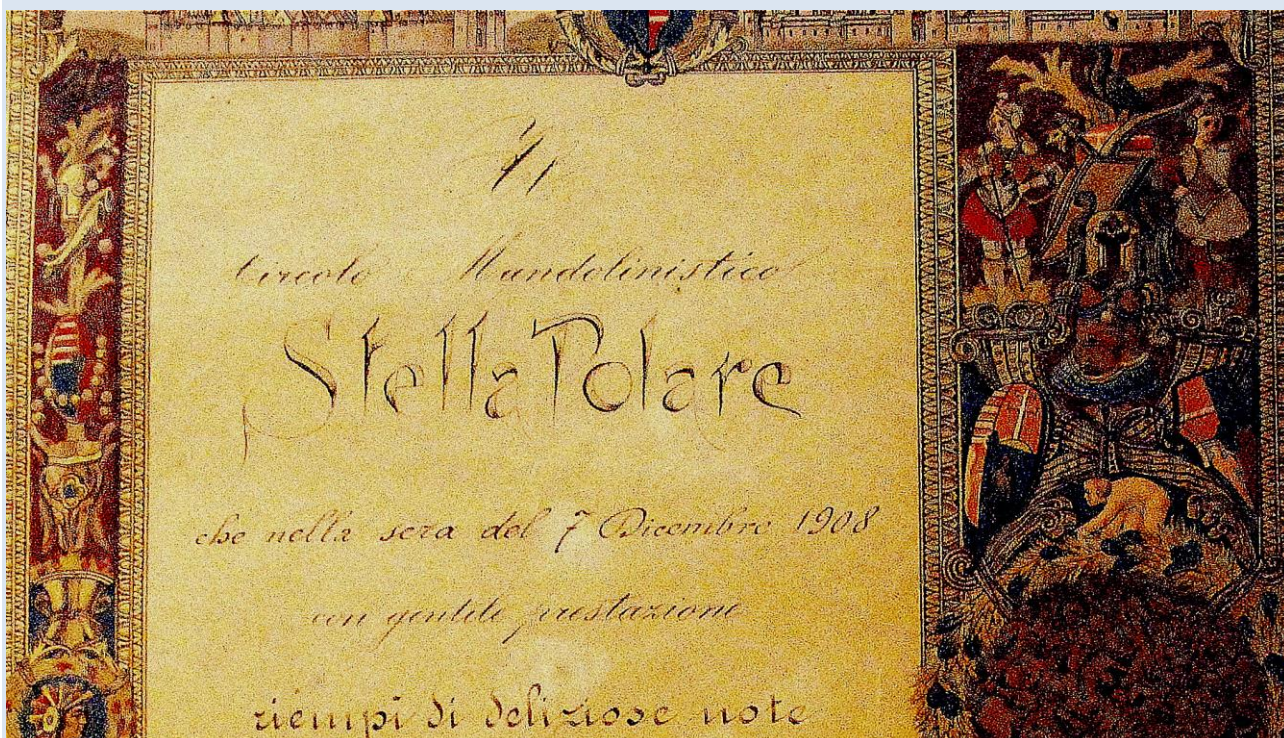 Al
Circolo Mandolinistico
Stella Polare
che nella sera del 7 Dicembre 1908
con gentile prestazione
riempì di deliziose note